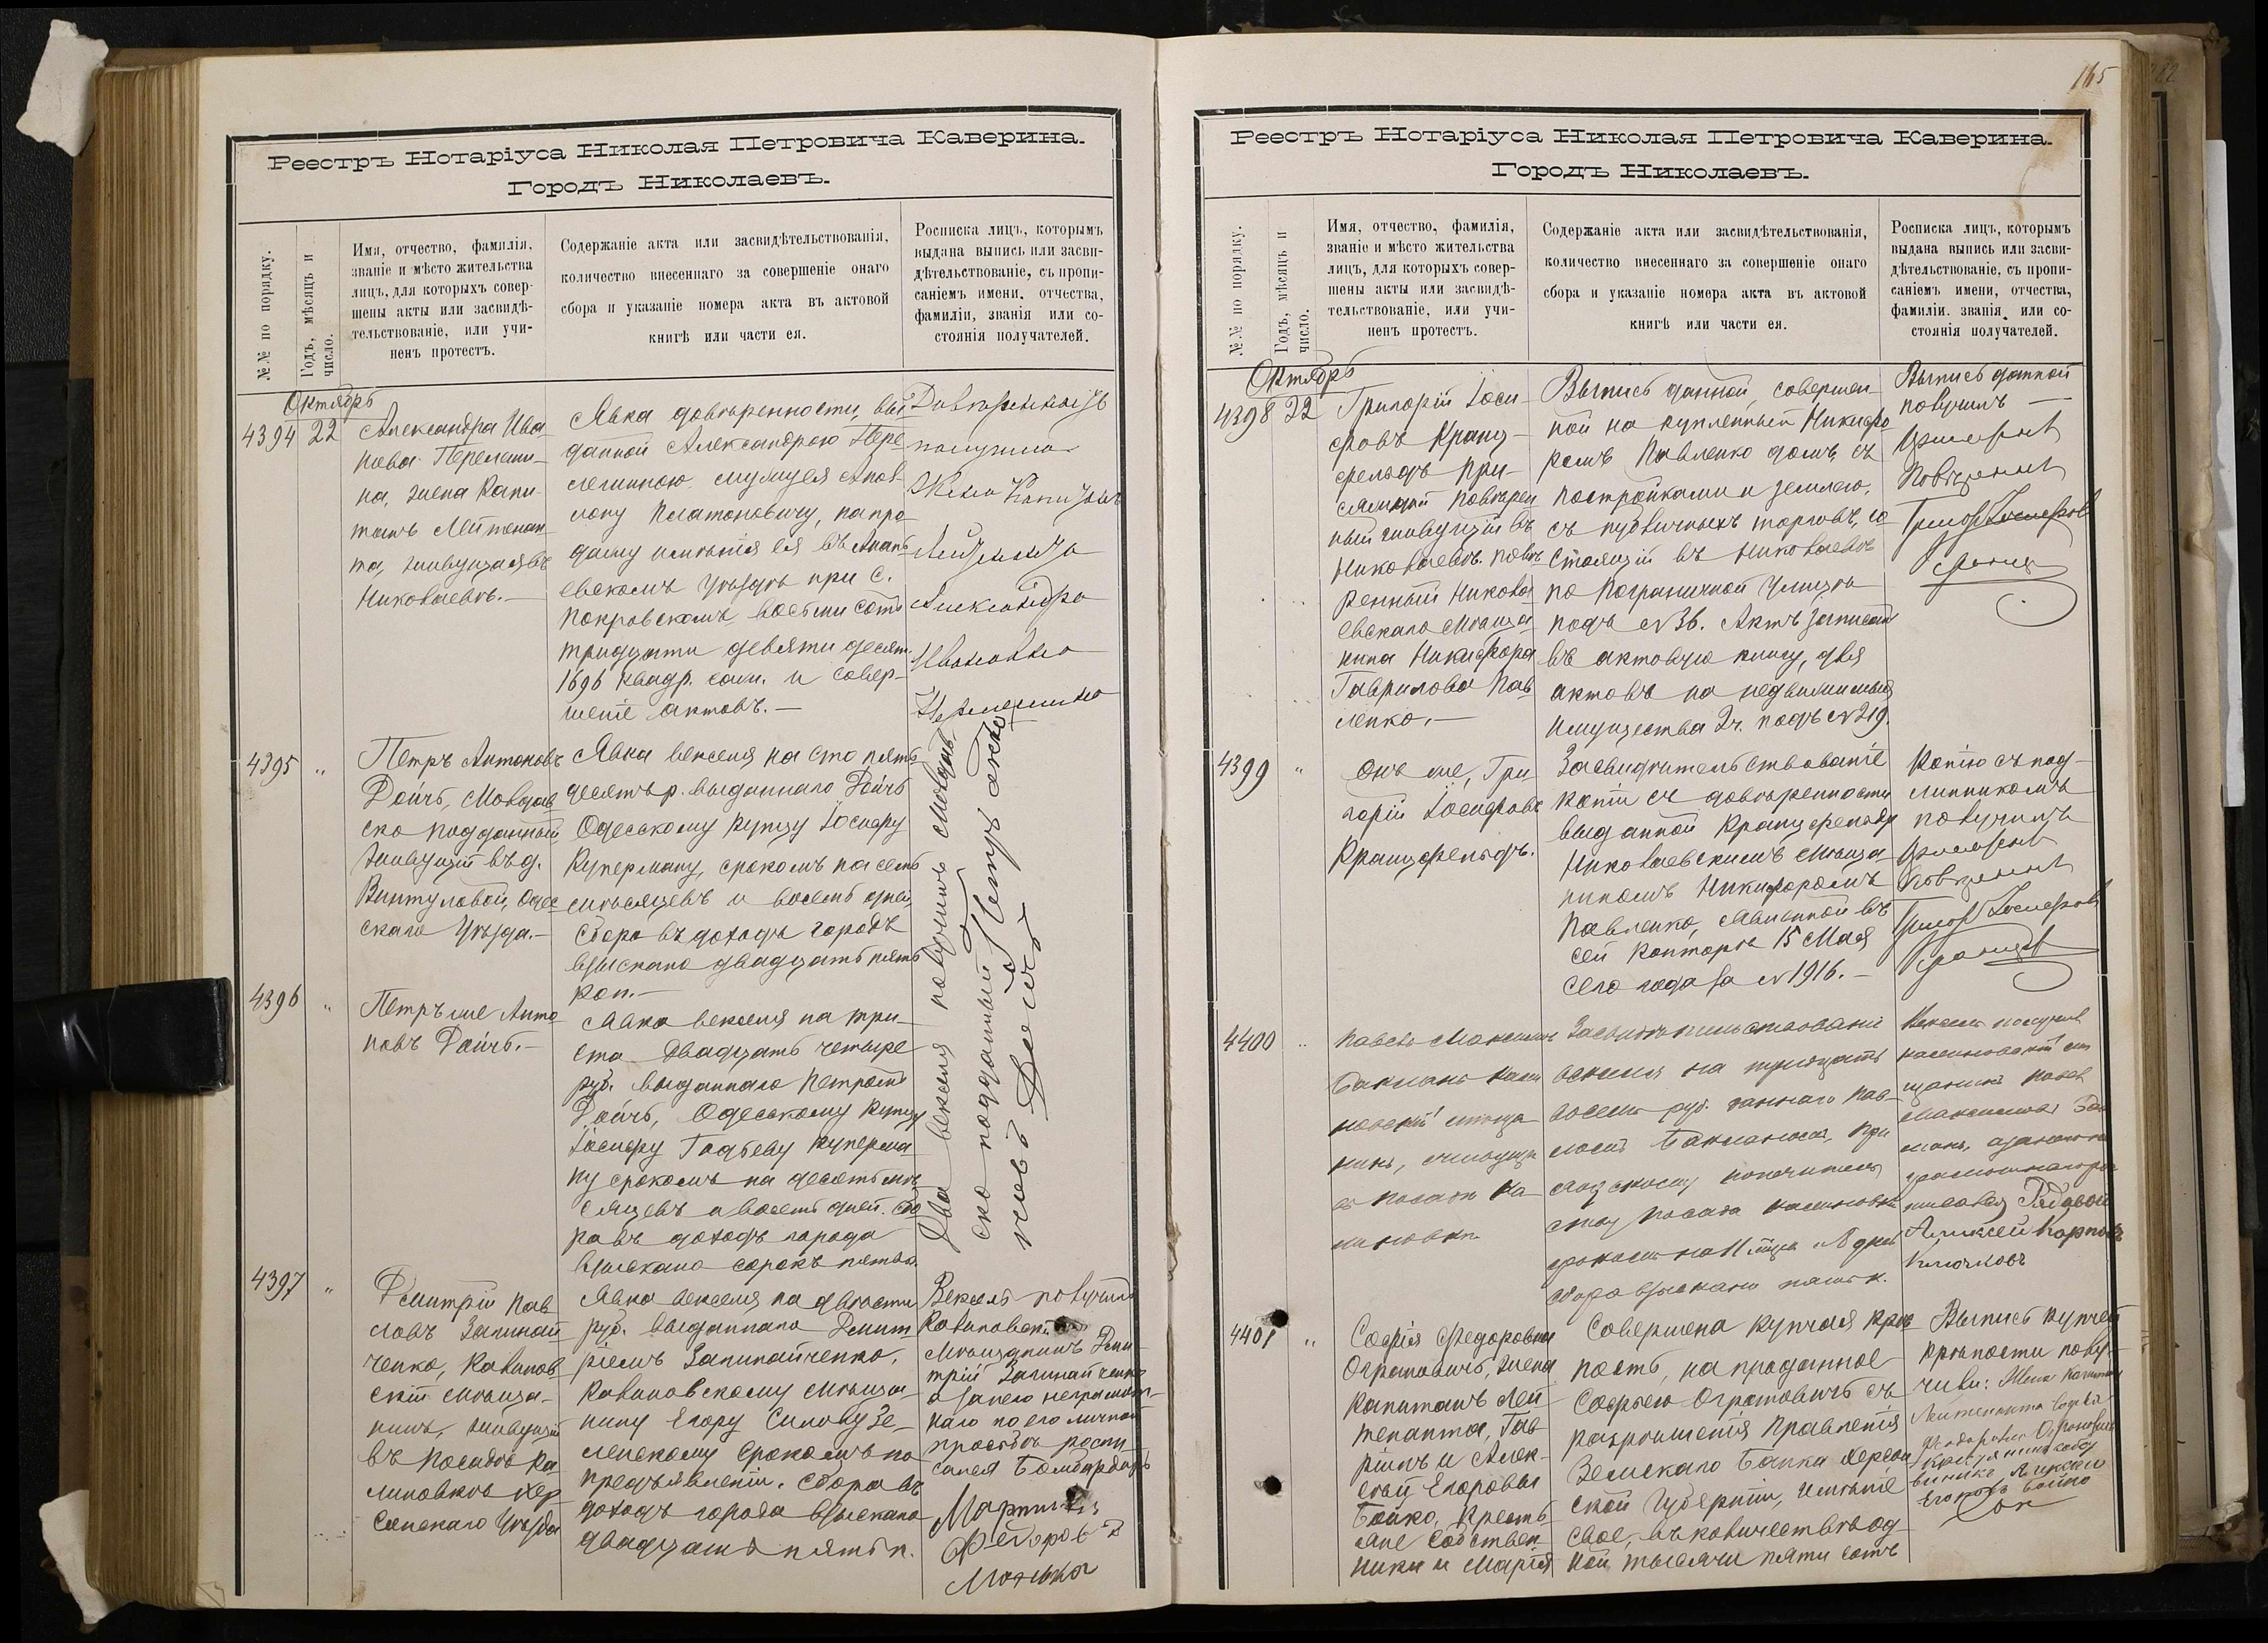 165
Реестръ Нотаріуса Николая Петровича Каверина.
Городъ Николаевъ.
№№ по порядку.
Годъ, мѣсяцъ и
число.
Имя, отчество, фамилія,
званіе и мѣсто жительства
лицъ, для которыхъ совер-
шены акты или засвидѣ-
тельствованіе, или учи-
ненъ протестъ.
Содержаніе акта или засвидѣтельствованія,
количество внесеннаго за совершеніе онаго
сбора и указаніе номера акта въ актовой
книгѣ или части ея.
Росписка лицъ, которымъ
выдана выпись или засви-
дѣтельствованіе, съ пропи-
саніемъ имени, отчества,
фамиліи, званія или со-
стоянія получателей.
Октябрь
4394 22
Александра Ива
нова Перелеши-
на, жена Капи-
танъ Лейтенан
та, живущая въ
Николаевѣ.-
Явка довѣренности, вы
данной Александрою Пере
лешиною, мужу ея Апол
лону Платоновичу, на про
дажу имѣнія ея въ Анань
евскомъ уѣздѣ при с.
Покровскомъ, восьми сотъ
тридцати девяти десят.
1696 квадр. саж. и совер-
шеніе актовъ.-
Довѣренность
получила
Жена Капитанъ
Лейтенанта
Александра
Ивановна
Перелешина
4395 "
Петръ Антоновъ
Дойчъ, Молдав
ско подданный,
живущій въ д.
Винтуловой, Одес
скаго уѣзда.-
Явка векселя на сто пять
десятъ р. выданнаго Дойчъ
Одесскому купцу Іосифу
Куперману, срокомъ на семь
мѣсяцевъ и восемь дней,
сбора въ доходъ города
взыскано двадцать пять
коп.-
4396 "
Петръ же Анто
новъ Дойчъ.-
Явка векселя на три-
ста двадцать четыре
руб. выданнаго Петромъ
Дойчъ, Одесскому купцу
Іосифу Куперма
ну срокомъ на девять мѣ
сяцевъ и восемь дней. Сбо
ра въ доходъ города
взыскано сорокъ пять к.
Два векселя получилъ Молдав
ско подданный Петръ Анто
новъ Дойчъ
4397 "
Дмитрій Пав
ловъ Запинай
ченко, Калинов
скій мѣща-
нинъ, живущій
въ посадѣ Ка
линовкѣ Хер
сонскаго уѣзда
Явка векселя на двѣсти
руб. выданнаго Дмит
ріемъ Запинайченко,
Калиновскому мѣща-
нину Егору Силову Зе-
ленскому срокомъ по
предъявленіи. Сбора въ
доходъ города взыскано
двадцать пять к.
Вексель получилъ
Калиновскій
мѣщанинъ Дми-
трій Запинайченко
а за него неграмот-
наго по его личной
просьбѣ роспи-
сался Бомбардиръ
Мартинъ
Федоровъ
Реестръ Нотаріуса Николая Петровича Каверина.
Городъ Николаевъ.
№№ по порядку.
Годъ, мѣсяцъ и
число.
Имя, отчество, фамилія,
званіе и мѣсто жительства
лицъ, для которыхъ совер-
шены акты или засвидѣ-
тельствованіе, или учи-
ненъ протестъ.
Содержаніе акта или засвидѣтельствованія,
количество внесеннаго за совершеніе онаго
сбора и указаніе номера акта въ актовой
книгѣ или части ея.
Росписка лицъ, которымъ
выдана выпись или засви-
дѣтельствованіе, съ пропи-
саніемъ имени, отчества,
фамиліи, званія или со-
стоянія получателей.
Октябрь
4398 22
Григорій Іоси-
фовъ Кранц-
фельдъ при-
сяжный повѣрен
ный живущій въ
Николаевѣ. повѣ
ренный Никола
евскаго мѣща
нина Никифора
Гаврилова Пав
ленко.-
Выпись данной, совершен
ной на купленный Никифо
ромъ Павленко домъ, съ
постройками и землею,
съ публичныхъ торговъ, со
стоящій въ Николаевѣ
по Пограничной улицѣ
подъ №36. Актъ записанъ
въ актовую книгу, для
актовъ на недвижимыя
имущества 2 ч. подъ №219.
Выпись данной
получилъ
присяжный
повѣренный
Григор Іосифов
Кранц
4399 "
Онъ же, Гри
горій Іосифовъ
Кранцфельдъ.
Засвидѣтельствованіе
копіи съ довѣренности
выданной Кранцфельду
Николаевскимъ мѣща-
ниномъ Никифоромъ
Павленко, явленной въ
сей Конторѣ 15 Мая
сего года за №1916.-
Копію съ под-
линникомъ
получилъ
присяжный
повѣренный
Григор Іосифов
Кранцф
4400 "
Павелъ Максимовъ
Бакланъ Кали
новскій мѣща
нинъ, живущій
въ посадѣ Ка
линовкѣ
Засвидѣтельствованіе
векселя на тридцать
восемь руб. даннаго Пав-
ломъ Бакланомъ,
попечительс
ству посада Калиновки
срокомъ на 11 мѣся
сбора взыскано пять к.
Вексель получилъ
Калиновскій мѣ
щанинъ Павелъ
Максимовъ Бак
ланъ, а за него не
грамотнаго рос
писался Рядовой
Алексѣй Карповъ
Клочковъ
4401 "
Софія Федоровна
Огроновичъ, жена
Капитанъ Лей
тенанта, Гав
ріилъ и Алек-
сѣй Егоровы
Бойко, крестья
яне собствен
ники и Марія
Совершена купчая крѣ
пость, на проданное
Софьею Огроновичъ съ
разрѣшенія Правленія
Земскаго Банка Херсон
ской Губерніи, имѣніе
свое, въ количествѣ од-
ной тысячи пяти сотъ
Выпись купчей
крѣпости полу-
чили: Жена Капитанъ
Лейтенанта Софья
Федоровна Огроновичъ
Крестьянинъ собст
венникъ Алексѣй
Егоровъ Бойко